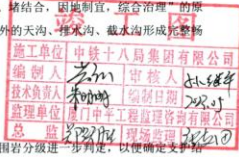 堵结合，因地制宜，综合治理”的原
外的天沟、排水沟、截水沟形成完整畅
竣工图
施工单位 中铁十八局集团有限公司
编制人 审核人
技术负责人 编制日期 2023.05
监理单位 厦门中平工程监理咨询有限公司
总监 现场监理
围岩分级进一步判定，以便确定支护结